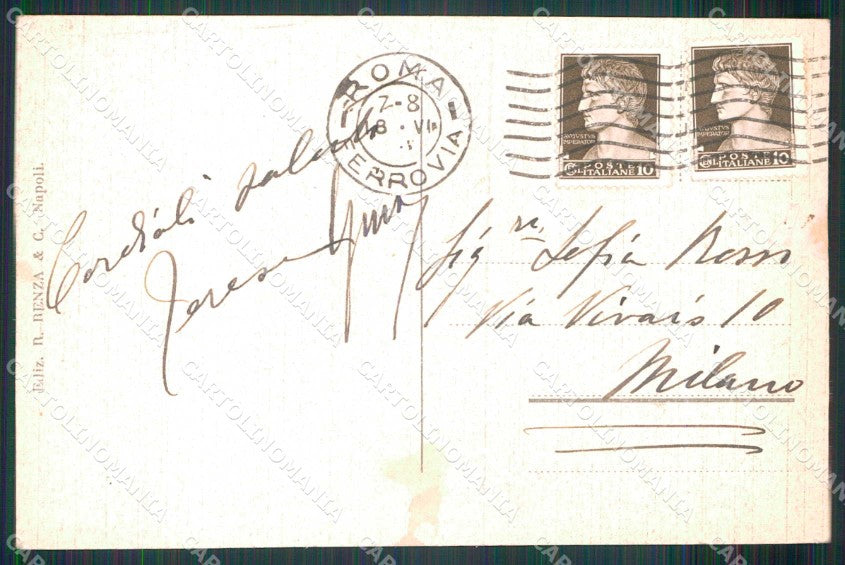 Ediz. R. RENZA & C. Napoli.
Cordiali saluti
Teresa
ROMA
7-8
18 VI
FERROVIA
AVGVSTVS
IMPERATOR
POSTE
CENT. ITALIANE 10
AVGVSTVS
IMPERATOR
POSTE
CENT. ITALIANE 10
Sig.ra Sofia Rossi
Via Vivaio 10
Milano
CARTOLINOMANIA